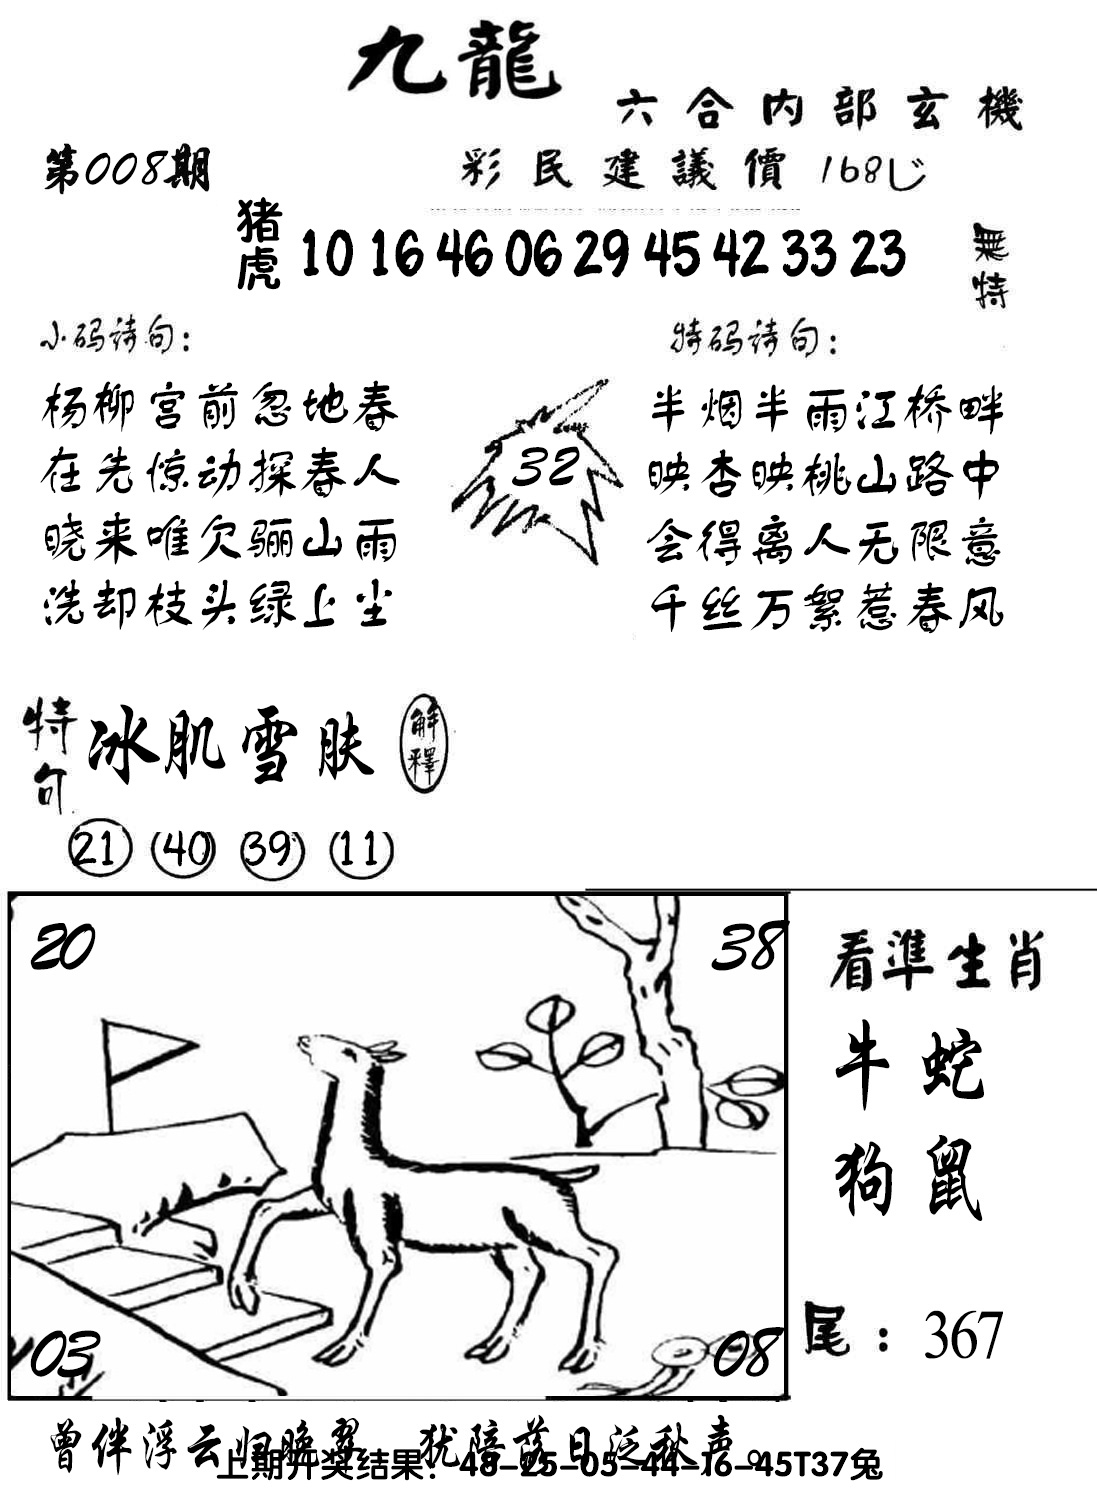 九龍
六合内部玄機
第008期
彩民建議價 168
猪虎 10 16 46 06 29 45 42 33 23
無特
小码诗句：
特码诗句：
杨柳宫前忽地春
在先惊动探春人
晓来唯欠骊山雨
洗却枝头绿上尘
32
半烟半雨江桥畔
映杏映桃山路中
会得离人无限意
千丝万絮惹春风
特句 冰肌雪肤 解釋
21 40 39 11
20
38
03
08
看準生肖
牛 蛇
狗 鼠
尾：367
曾伴浮云归晚翠 犹陪落日泛秋声。
上期开奖结果：48-25-05-44-16-45T37兔